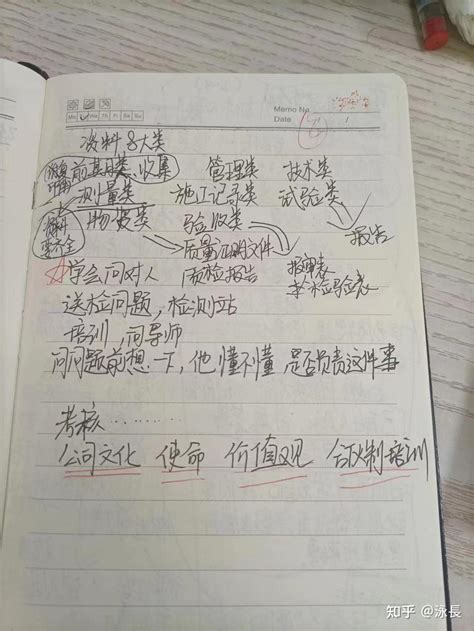 Memo No.
Mo Tu We Th Fr Sa Su
Date / /
资料8大类
前期类 收集 管理类 技术类
测量类 施工记录类 试验类
物资类 验收类
资料 安全
质量证明文件 报告
学会问对人 质检报告 报审表
检验表
送检问题，检测站
培训，问导师
问问题前想一下，他懂不懂 是否负责这件事
考核……
公司文化 使命 价值观 合伙制培训
知乎 @泳長